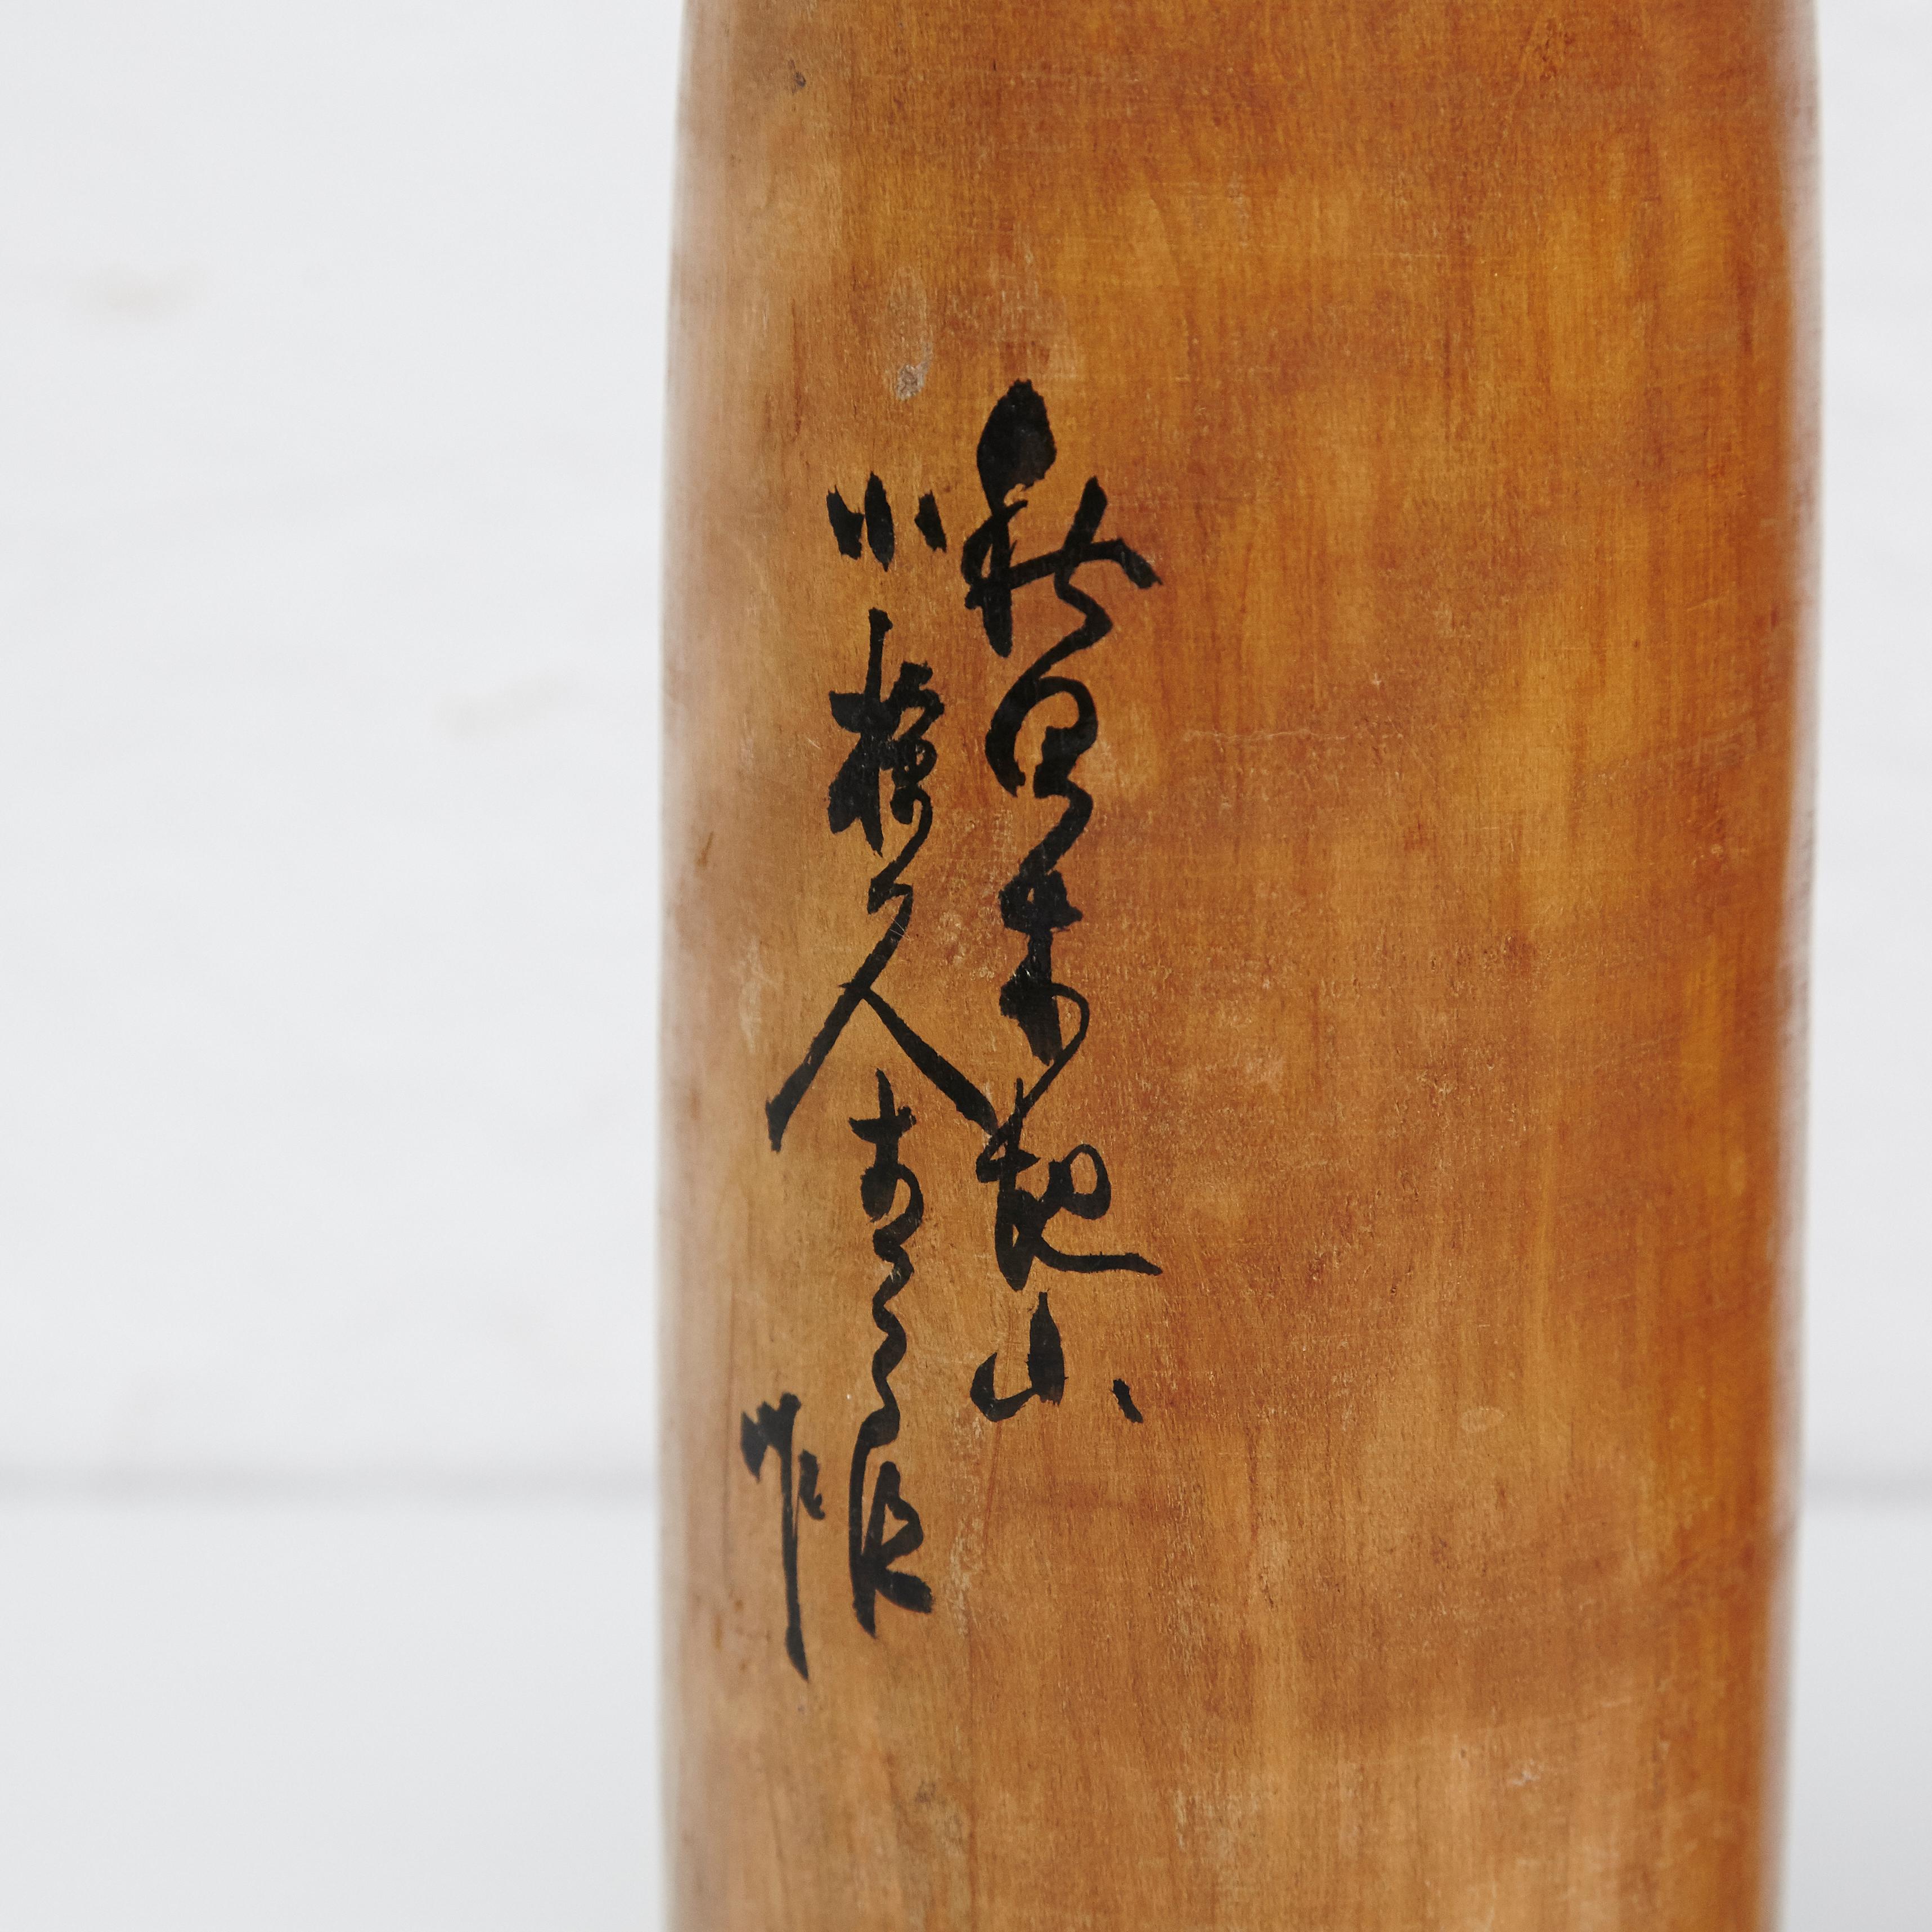 秋田木地山
小椋久
作